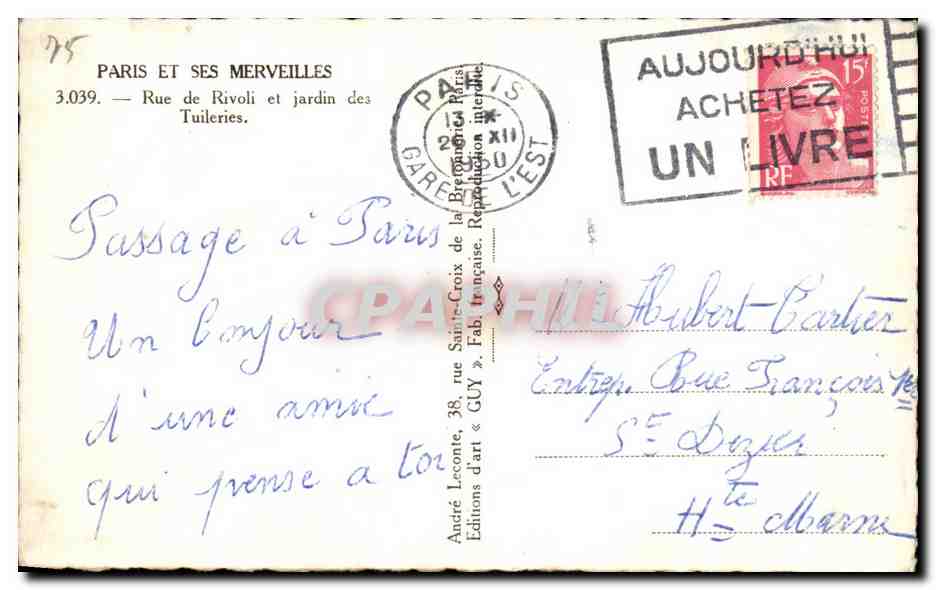 75
PARIS ET SES MERVEILLES
3.039. — Rue de Rivoli et jardin des
Tuileries.
PARIS
13 H
26 XII
1950
GARE DE L'EST
AUJOURD'HUI
ACHETEZ
UN LIVRE
15F
POSTES
RF
Passage à Paris
Un bonjour
d'une amie
qui pense a toi
André Leconte, 38, rue Sainte-Croix de la Bretonnerie, Paris
Editions d'art « GUY ». Fab. française. Reproduction interdite.
CPAPHIL
Hubert-Cartier
Entrep. Rue François 1er
St Dizier
Hte Marne